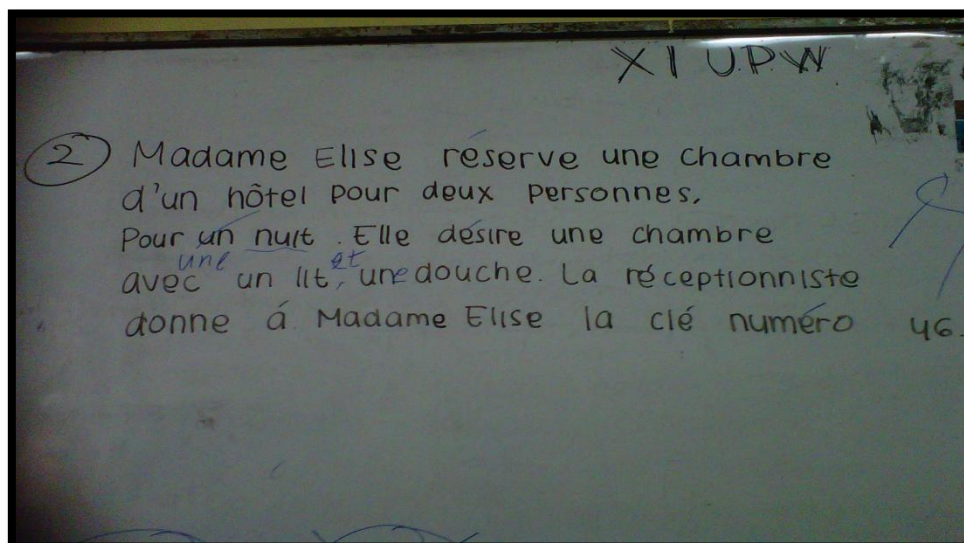 XI U.P.W
2 Madame Elise réserve une chambre
d'un hôtel pour deux personnes.
Pour un nuit. Elle désire une chambre
une et
avec un lit, une douche. La réceptionniste
donne á Madame Elise la clé numéro 46.